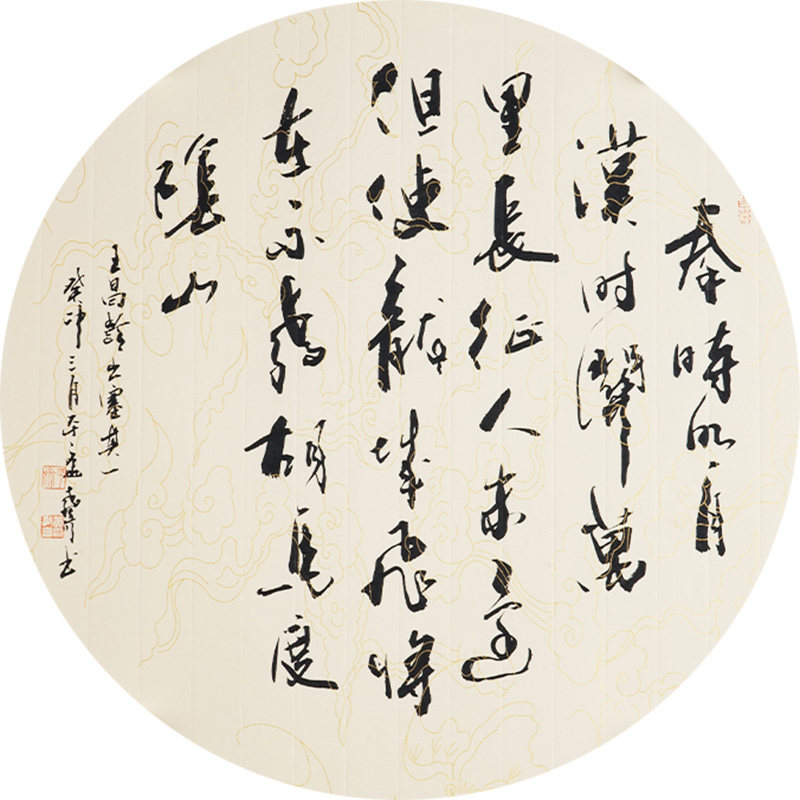 秦時明月
漢时關萬
里長征人未還
但使龍城飛將
在不教胡馬度
陰山
王昌齡出塞其一
癸卯三月